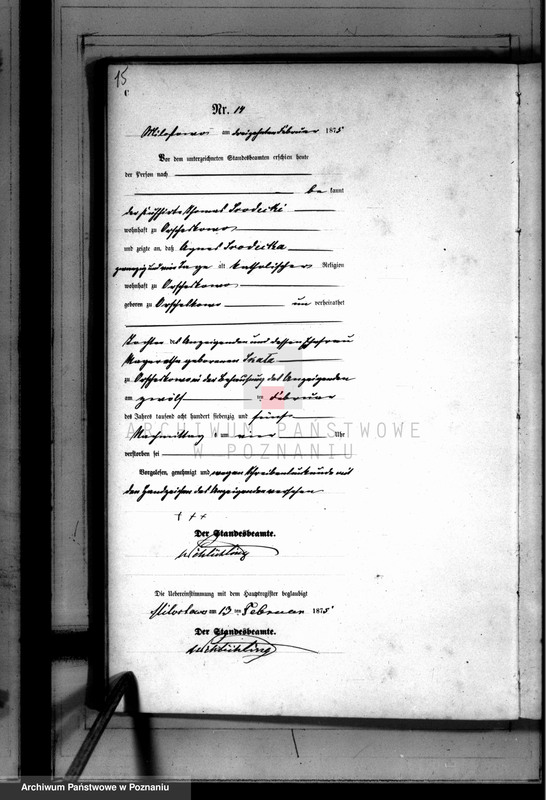 15
C
Nr. 14
Miloslaw am dreizehnten Februar 1875
Vor dem unterzeichneten Standesbeamten erschien heute
der Person nach
be kannt
der Thomas Srodecki
wohnhaft zu Orzechowo
und zeigte an, daß Agnes Srodecka
zwanzig und ein Tage alt katholischer Religion
wohnhaft zu Orzechowo
geboren zu Orzechowo un verheirathet
Tochter des Anzeigenden und dessen Ehefrau
geborenen
zu Orzechowo in der Behausung des Anzeigenden
am zwölf ten Februar
des Jahres tausend acht hundert siebenzig und fünf
Nachmittag s um vier Uhr
verstorben sei
Vorgelesen, genehmigt und wegen Schreibensunkunde mit
den Handzeichen des Anzeigenden versehen
+ + +
Der Standesbeamte.
Die Uebereinstimmung mit dem Hauptregister beglaubigt
Miloslaw am 13 ten Februar 1875
Der Standesbeamte.
ARCHIWUM PAŃSTWOWE
W POZNANIU
Archiwum Państwowe w Poznaniu